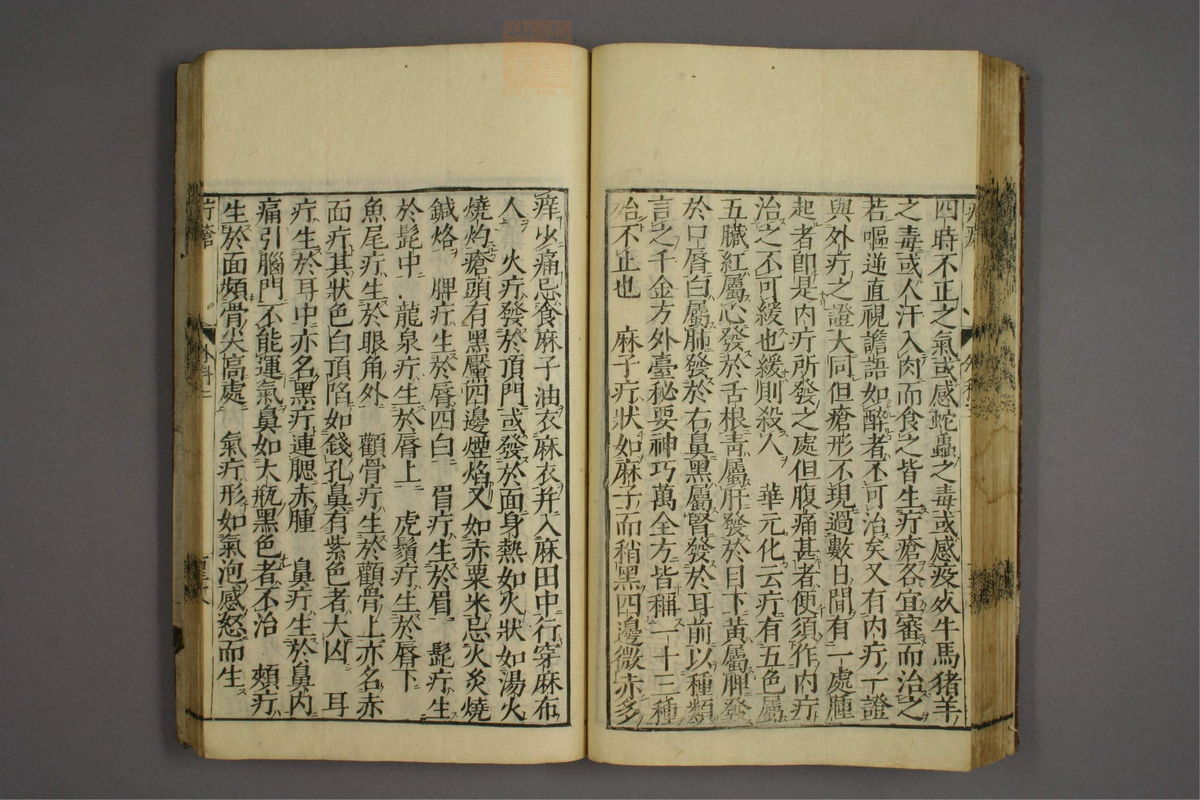 四時不正之氣或感蛇蟲之毒或感疫死牛馬猪羊
之毒或人汗入肉而食之皆生疔瘡各宜審而治之
若嘔逆直視譫語如醉者不可治矣又有内疔一證
與外疔之證大同但瘡形不現過數日間有一處腫
起者卽是内疔所發之處但腹痛甚者便須作内疔
治之不可緩也緩則殺人　華元化云疔有五色屬
五臟紅屬心發於舌根青屬肝發於目下黃屬脾發
於口脣白屬肺發於右鼻黑屬腎發於耳前以種類
言之千金方外臺秘要神巧萬全方皆稱一十三種
殆不止也　麻子疔狀如麻子而稍黑四邊微赤多
痒少痛忌食麻子油衣麻衣并入麻田中行穿麻布
人　火疔發於頂門或發於面身熱如火狀如湯火
燒灼瘡頭有黑黶四邊煙焰又如赤粟米忌火炙燒
鍼烙　脾疔生於脣四白　眉疔生於眉　髭疔生
於髭中　龍泉疔生於脣上　虎鬚疔生於脣下
魚尾疔生於眼角外　顴骨疔生於顴骨上亦名赤
面疔其狀色白頂陷如錢孔鼻有紫色者大凶　耳
疔生於耳中亦名黑疔連腮赤腫　鼻疔生於鼻内
痛引腦門不能運氣鼻如大瓶黑色者不治　頰疔
生於面頰骨尖高處　氣疔形如氣泡感怒而生